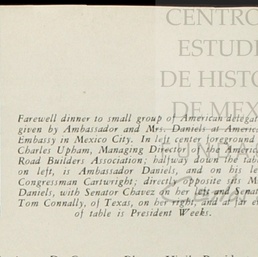 CENTRO
ESTUDI
DE HISTO
DE MEX
Farewell dinner to small group of American delegat
given by Ambassador and Mrs. Daniels at Americ
Embassy in Mexico City. In left center foreground
Charles Upham, Managing Director of the Americ
Road Builders Association; halfway down the tab
on left, is Ambassador Daniels, and on his le
Congressman Cartwright; directly opposite sits M
Daniels, with Senator Chavez on her left and Senat
Tom Connally, of Texas, on her right, and at far e
of table is President Weeks.